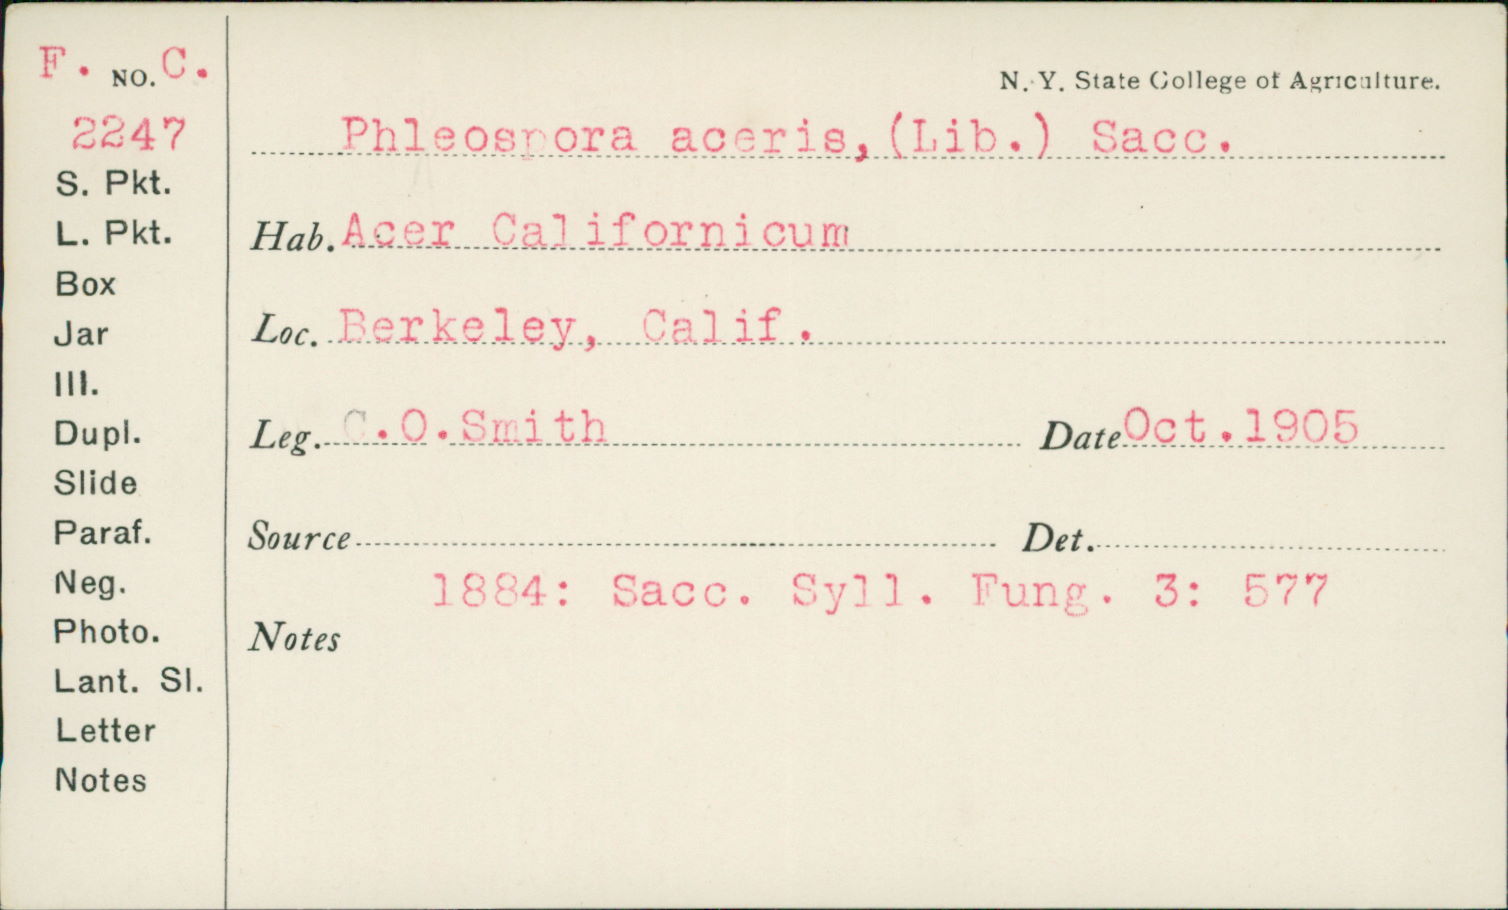 F. NO. C.
2247
S. Pkt.
L. Pkt.
Box
Jar
Ill.
Dupl.
Slide
Paraf.
Neg.
Photo.
Lant. Sl.
Letter
Notes
N. Y. State College of Agriculture.
Phleospora aceris,(Lib.) Sacc.
Hab. Acer Californicum
Loc. Berkeley, Calif.
Leg. C.O.Smith Date Oct.1905
Source Det.
1884: Sacc. Syll. Fung. 3: 577
Notes